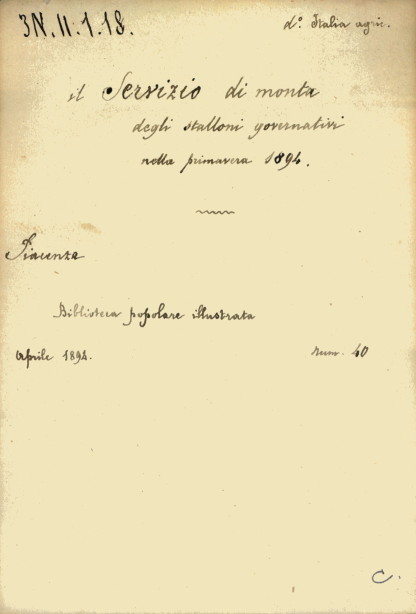 3N.II.1.18.
d.º Italia agric.
il Servizio di monta
degli stalloni governativi
nella primavera 1894.
Piacenza
Biblioteca popolare illustrata
Aprile 1894.
num. 40
C.